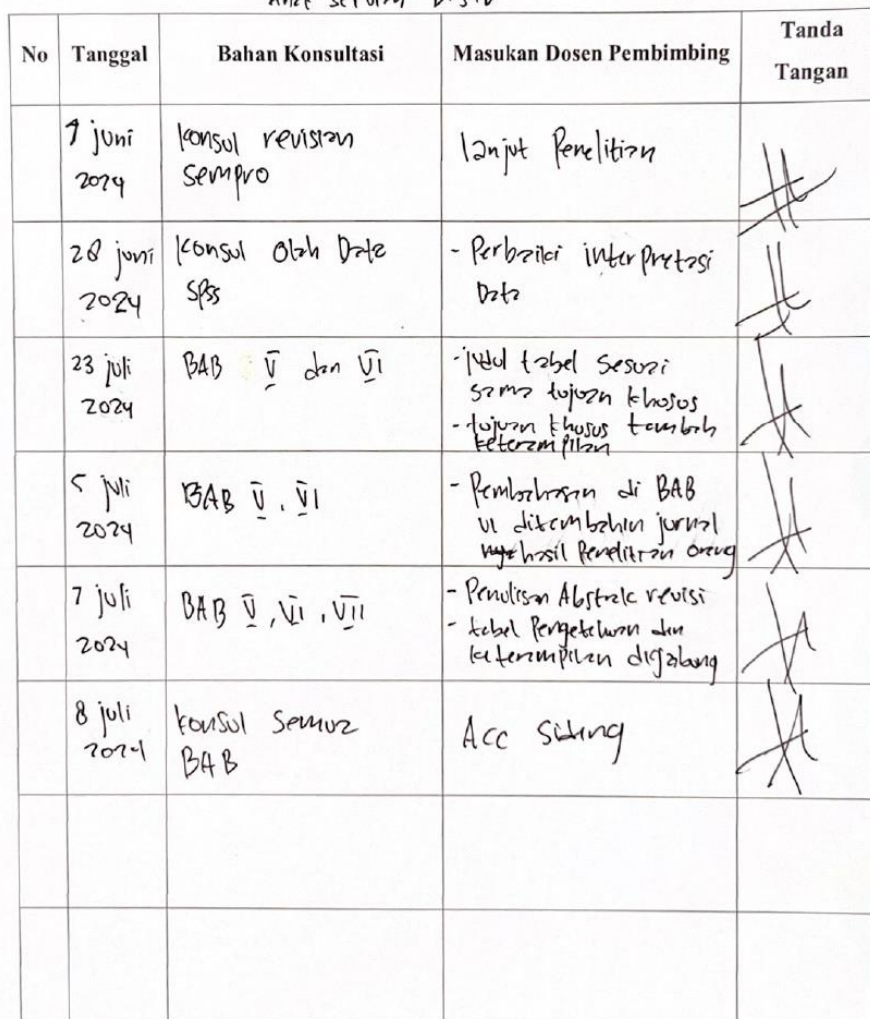 No Tanggal Bahan Konsultasi Masukan Dosen Pembimbing Tanda Tangan
7 juni 2024
konsul revisian
sempro
lanjut Penelitian
28 juni 2024
konsul Olah Data
SPSS
- Perbaiki interpretasi
Data
23 juli 2024
BAB V dan VI
- judul tabel sesuai
sama tujuan khusus
- tujuan khusus tambah
keterampilan
5 juli 2024
BAB V, VI
- Pembahasan di BAB
VI ditambahin jurnal
hasil Penelitian orang
7 juli 2024
BAB V, VI, VII
- Penulisan Abstrak revisi
- tabel Pengetahuan dan
keterampilan digabung
8 juli 2024
konsul semua
BAB
Acc Sidang